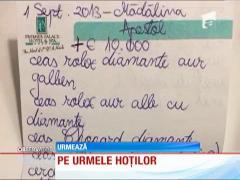 1 Sept. 2013 - Mădălina
Apostol
PREMIER PALACE
HOTEL & SPA
+ € 10.000
ceas rolex diamante aur
galben
ceas rolex aur alb cu
diamante
ceas Chopard diamante
ceas
URMEAZĂ
PE URMELE HOȚILOR